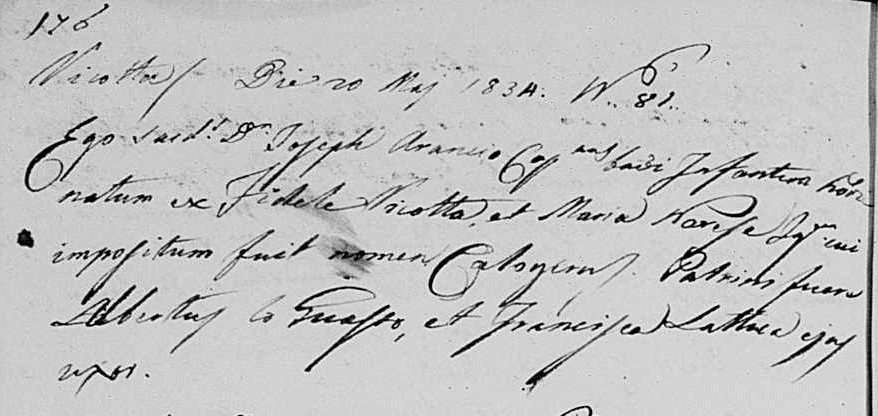 176
Nicotta Die 20 Maj 1834. N. 81.
Ego Sacds. Dr. Joseph Arancio Capnus baði Infantem hodie
natum ex Fidele Nicotta, et Maria Jug. cui
impositum fuit nomen Calogerus. Patrini fuere
Albertus lo Guasto, et Francisca Lattuca ejus
uxor.